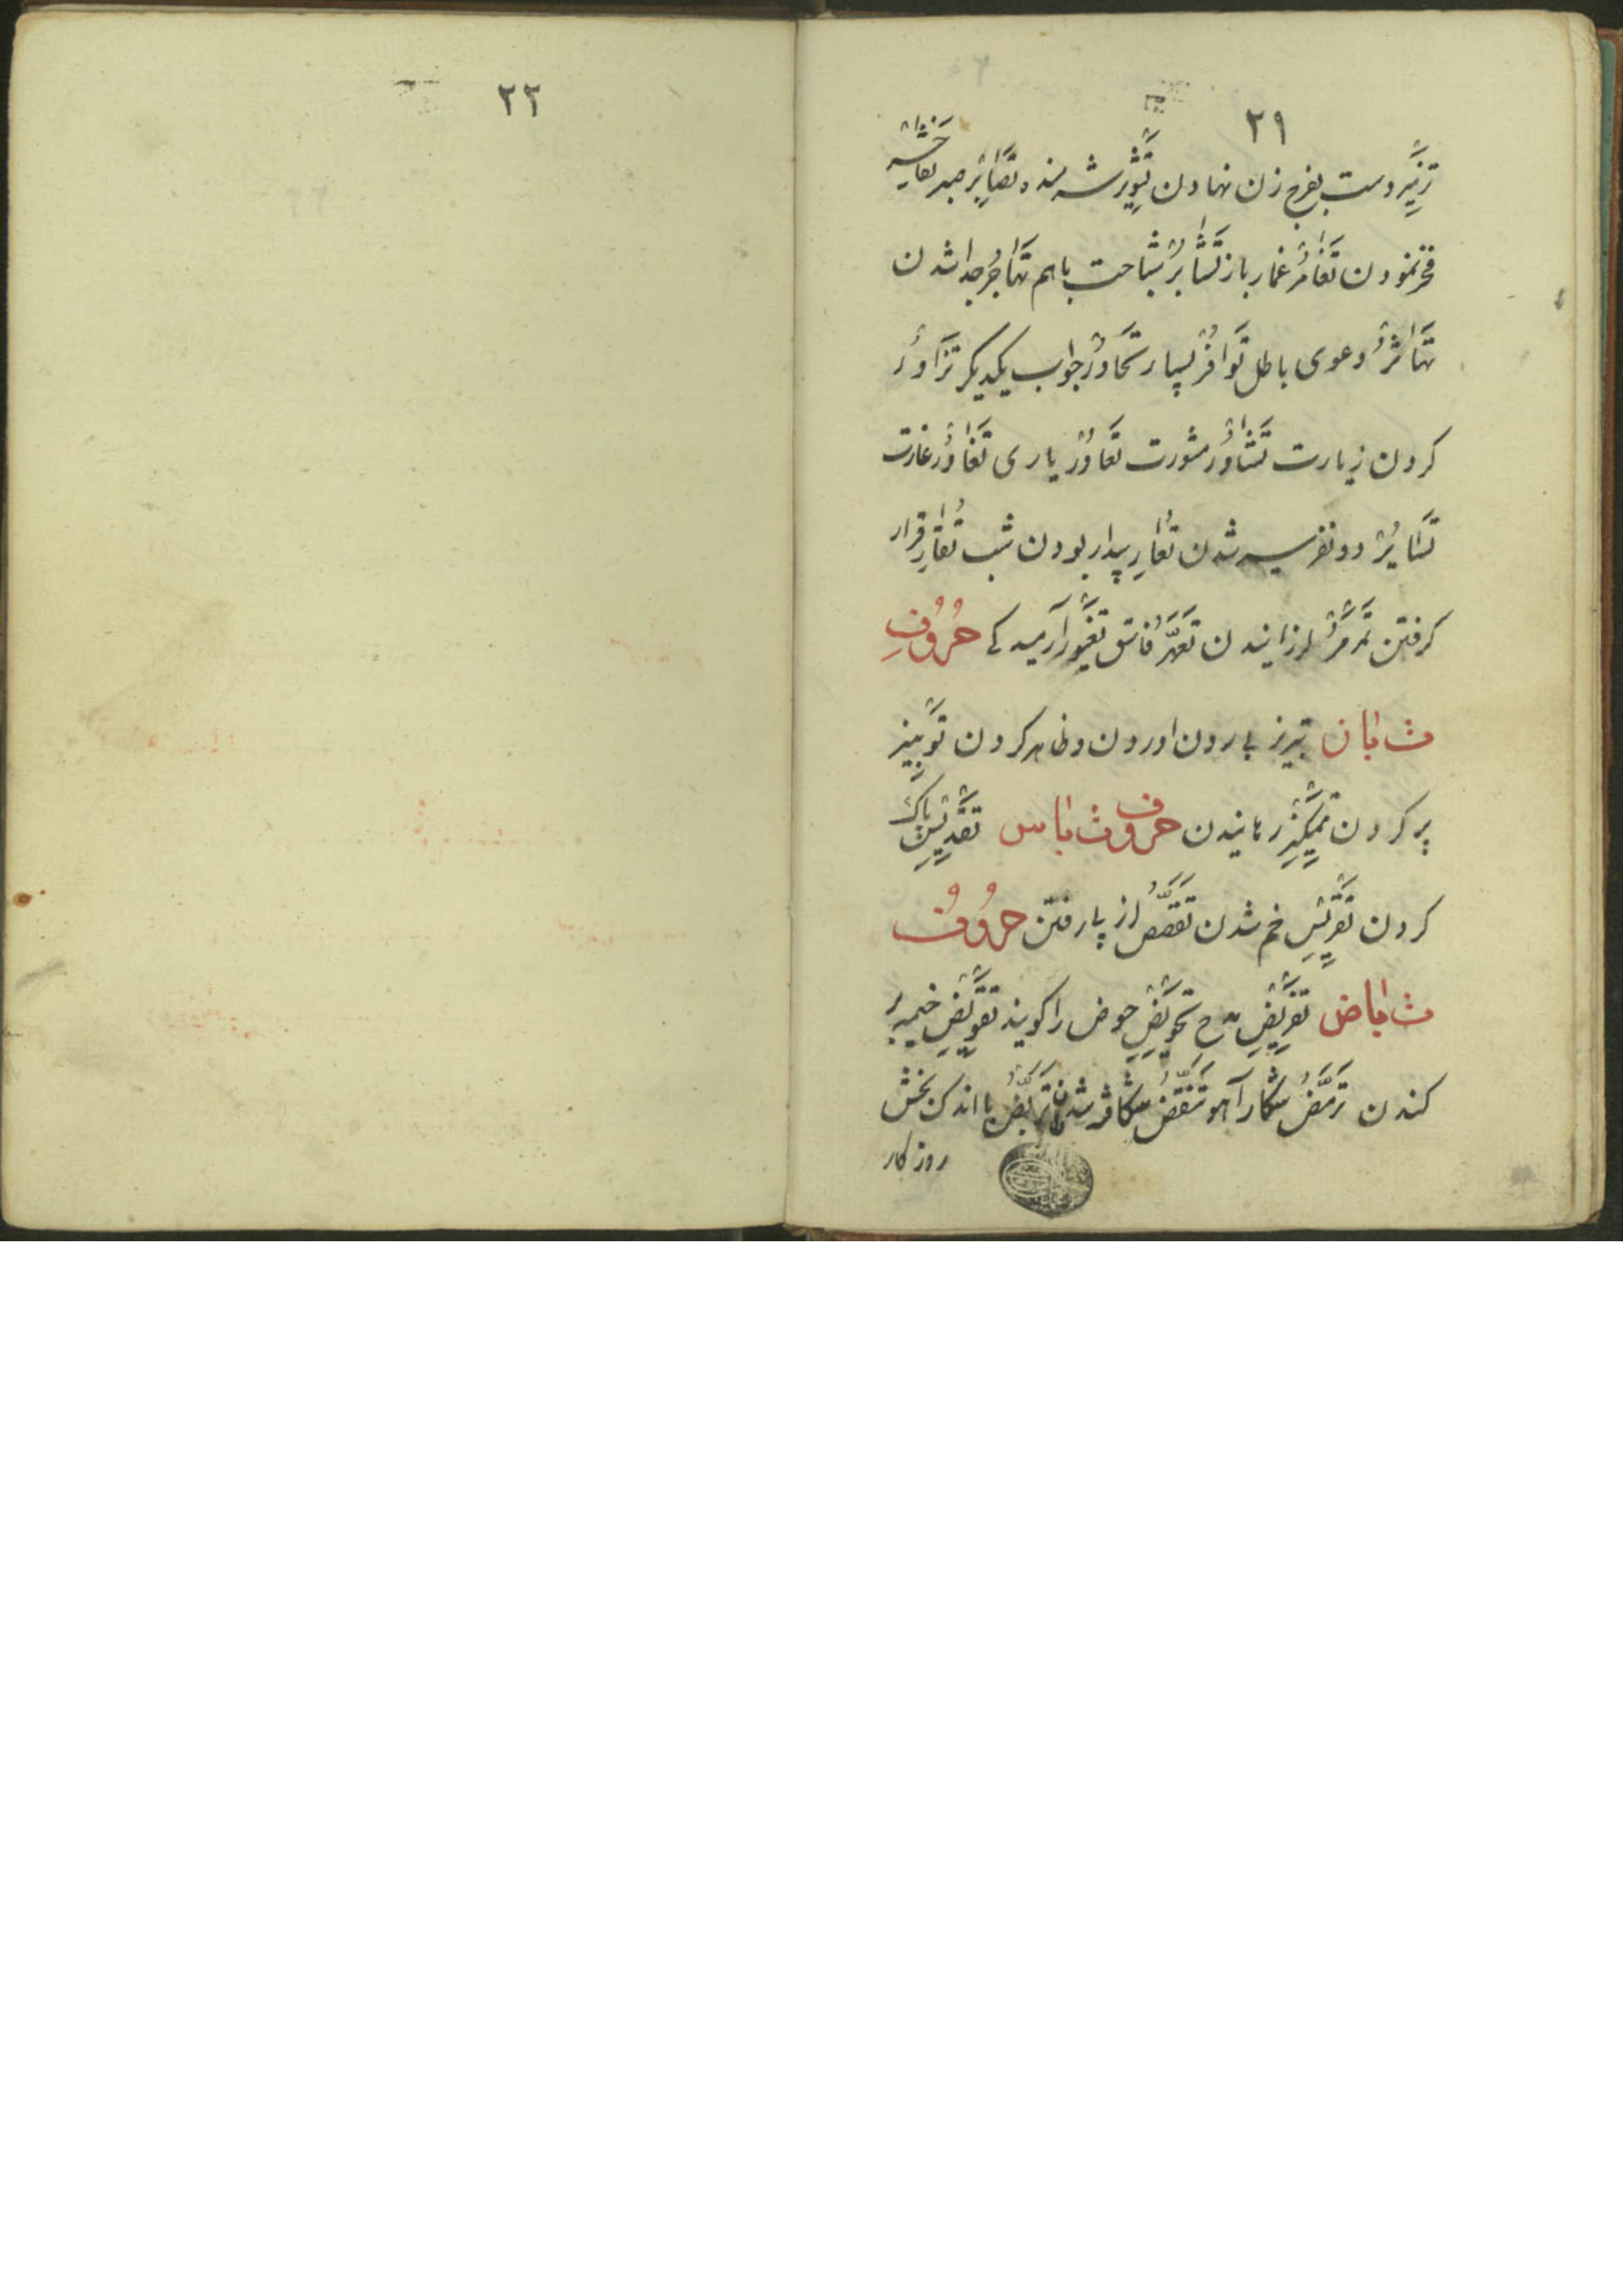 ۲۱
تزنیر دست بفرج زن نهادن تثویر شرمنده تصابر صبر تفاخر
فخر نمودن تقامر قمار باز تشابر شباحت باهم تهاجر جدا شدن
تهاتر دعوی باطل توافر بسیار تحاور جواب یکدیگر تزاور
کردن زیارت تشاور مشورت تعاور یاری تغاور غارت
تسایر دو نفر سیر شدن تعار بیدار بودن شب تقار قرار
کرفتن تمرمر لرزانیدن تعهر فاسق آرمیدکی حروف
ث با ن تبریز بیرون اوردن و ظاهر کردن
پر کردن رهانیدن حروف ث با س تقدیس پاک
کردن تقریس خم شدن تقعص از پا رفتن حروف
ث با ض تقریض مدح تحویض حوض را کویند تقویض خیمه
کندن ترمض شکار آهو تنقض شکافته شدن تبرض با اندک بخش
روزکار
۲۲